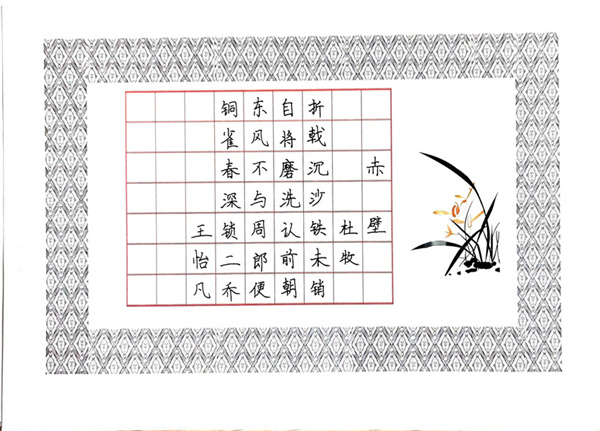 赤壁
杜牧
折戟沉沙铁未销
自将磨洗认前朝
东风不与周郎便
铜雀春深锁二乔
王怡凡